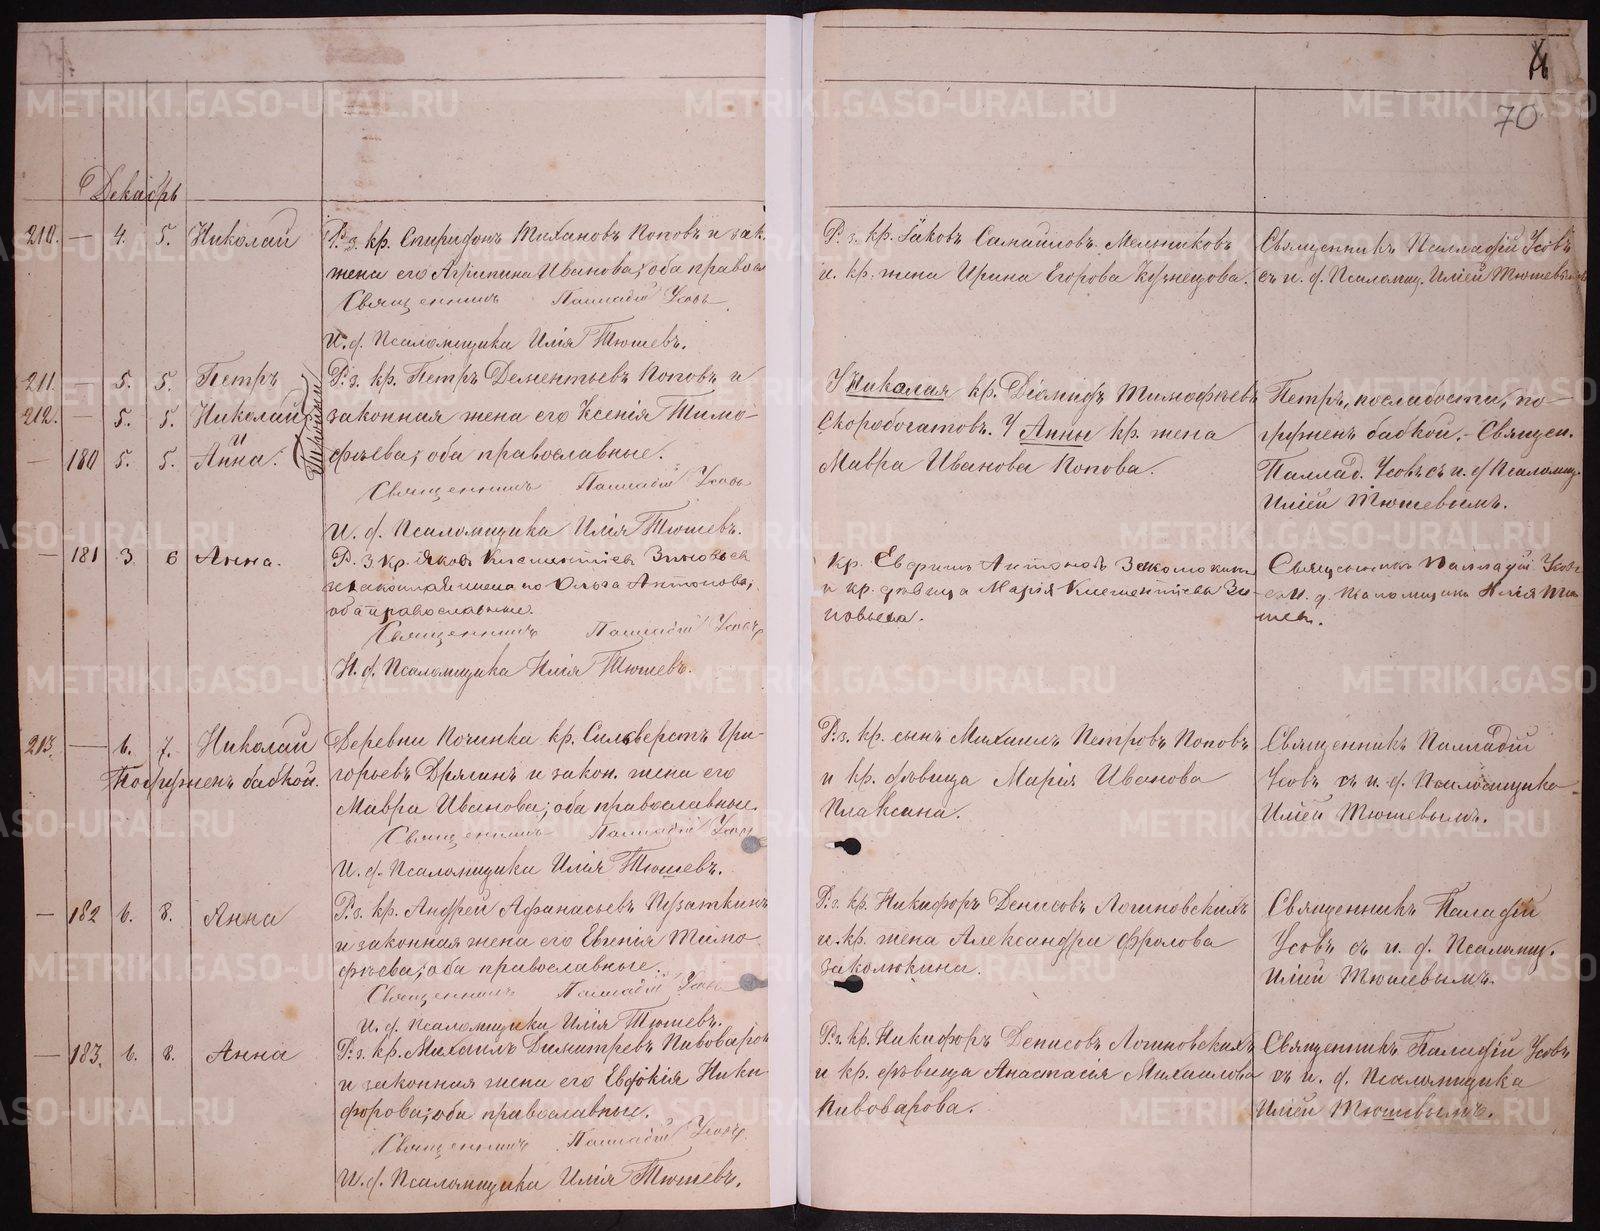 70
Декабрь
210. — 4. 5. Николай
Р. з. кр. Спиридонъ Тихановъ Поповъ и зак.
жена его Агрипина Иванова; оба правосл
Священникъ Палладій Усовъ.
И. ф. Псаломщика Илія Тюшевъ.
Р. з. кр. Іаковъ Самаиловъ Мельниковъ
и кр. жена Ирина Егорова Кузнецова.
Священникъ Палладій Усовъ
съ и. ф. Псаломщ. Иліей Тюшевымъ
211. — 5. 5. Петръ
212. — 5. 5. Николай
— 180 5. 5. и Анна.
Тройни
Р. з. кр. Петръ Дементьевъ Поповъ и
законная жена его Ксенія Тимо-
фѣева; оба православные.
Священникъ Палладій Усовъ
И. ф. Псаломщика Илія Тюшевъ.
У Николая кр. Діамидъ Тимофѣевъ
Скоробогатовъ. У Анны кр. жена
Мавра Иванова Попова.
Петръ, по слабости, по-
гружень бабкой. Священ.
Паллад. Усовъ съ и. ф Псаломщ.
Иліей Тюшевымъ.
— 181 3 6 Анна.
Р. З кр. Яковъ Климентіевъ Зиновьев
и законная жена его Ольга Антонова,
оба православные.
Священникъ Палладій Усовъ
И. ф. Псаломщика Илія Тюшевъ.
кр. Ефимъ Антоновъ Заколюкин
и кр. дѣвица Марія Климентіева Зи-
новьева.
Священникъ Палладій Усовъ
с И. ф Псаломщика Илія Тю
шев.
213. — 6. 7. Николай
Погружень бабкой.
Деревни Починка кр. Сильверстъ Гри-
горьевъ Дрягинъ и закон. жена его
Мавра Иванова; оба православные.
Священникъ Палладій Усовъ
И. ф. Псаломщика Илія Тюшевъ.
Р. з. кр. сынъ Михаилъ Петровъ Поповъ
и кр. дѣвица Марія Иванова
Плаксина.
Священникъ Палладій
Усовъ съ и. ф. Псаломщика
Иліей Тюшевымъ.
— 182 6. 8. Анна
Р. з. кр. Андрей Афанасьевъ Пузаткинъ
и законная жена его Евгенія Тимо
фѣева; оба православные.
Священникъ Палладій Усовъ
И. ф. Псаломщика Илія Тюшевъ.
Р. з. кр. Никифоръ Денисовъ Логиновскихъ
и кр. жена Александра Фролова
Заколюкина.
Священникъ Паладій
Усовъ съ и. ф. Псаломщ.
Иліей Тюшевымъ.
— 183. 6. 8. Анна
Р. з. кр. Михаилъ Димитревъ Пивоваровъ
и законная жена его Евдокія Ники-
форова; оба православные.
Священникъ Палладій Усовъ
И. ф. Псаломщика Илія Тюшевъ.
Р. з. кр. Никифоръ Денисовъ Логиновскихъ
и кр. дѣвица Анастасія Михаилова
Пивоварова.
Священникъ Паладій Усовъ
съ и. ф. Псаломщика
Иліей Тюшевымъ.
METRIKI.GASO-URAL.RU